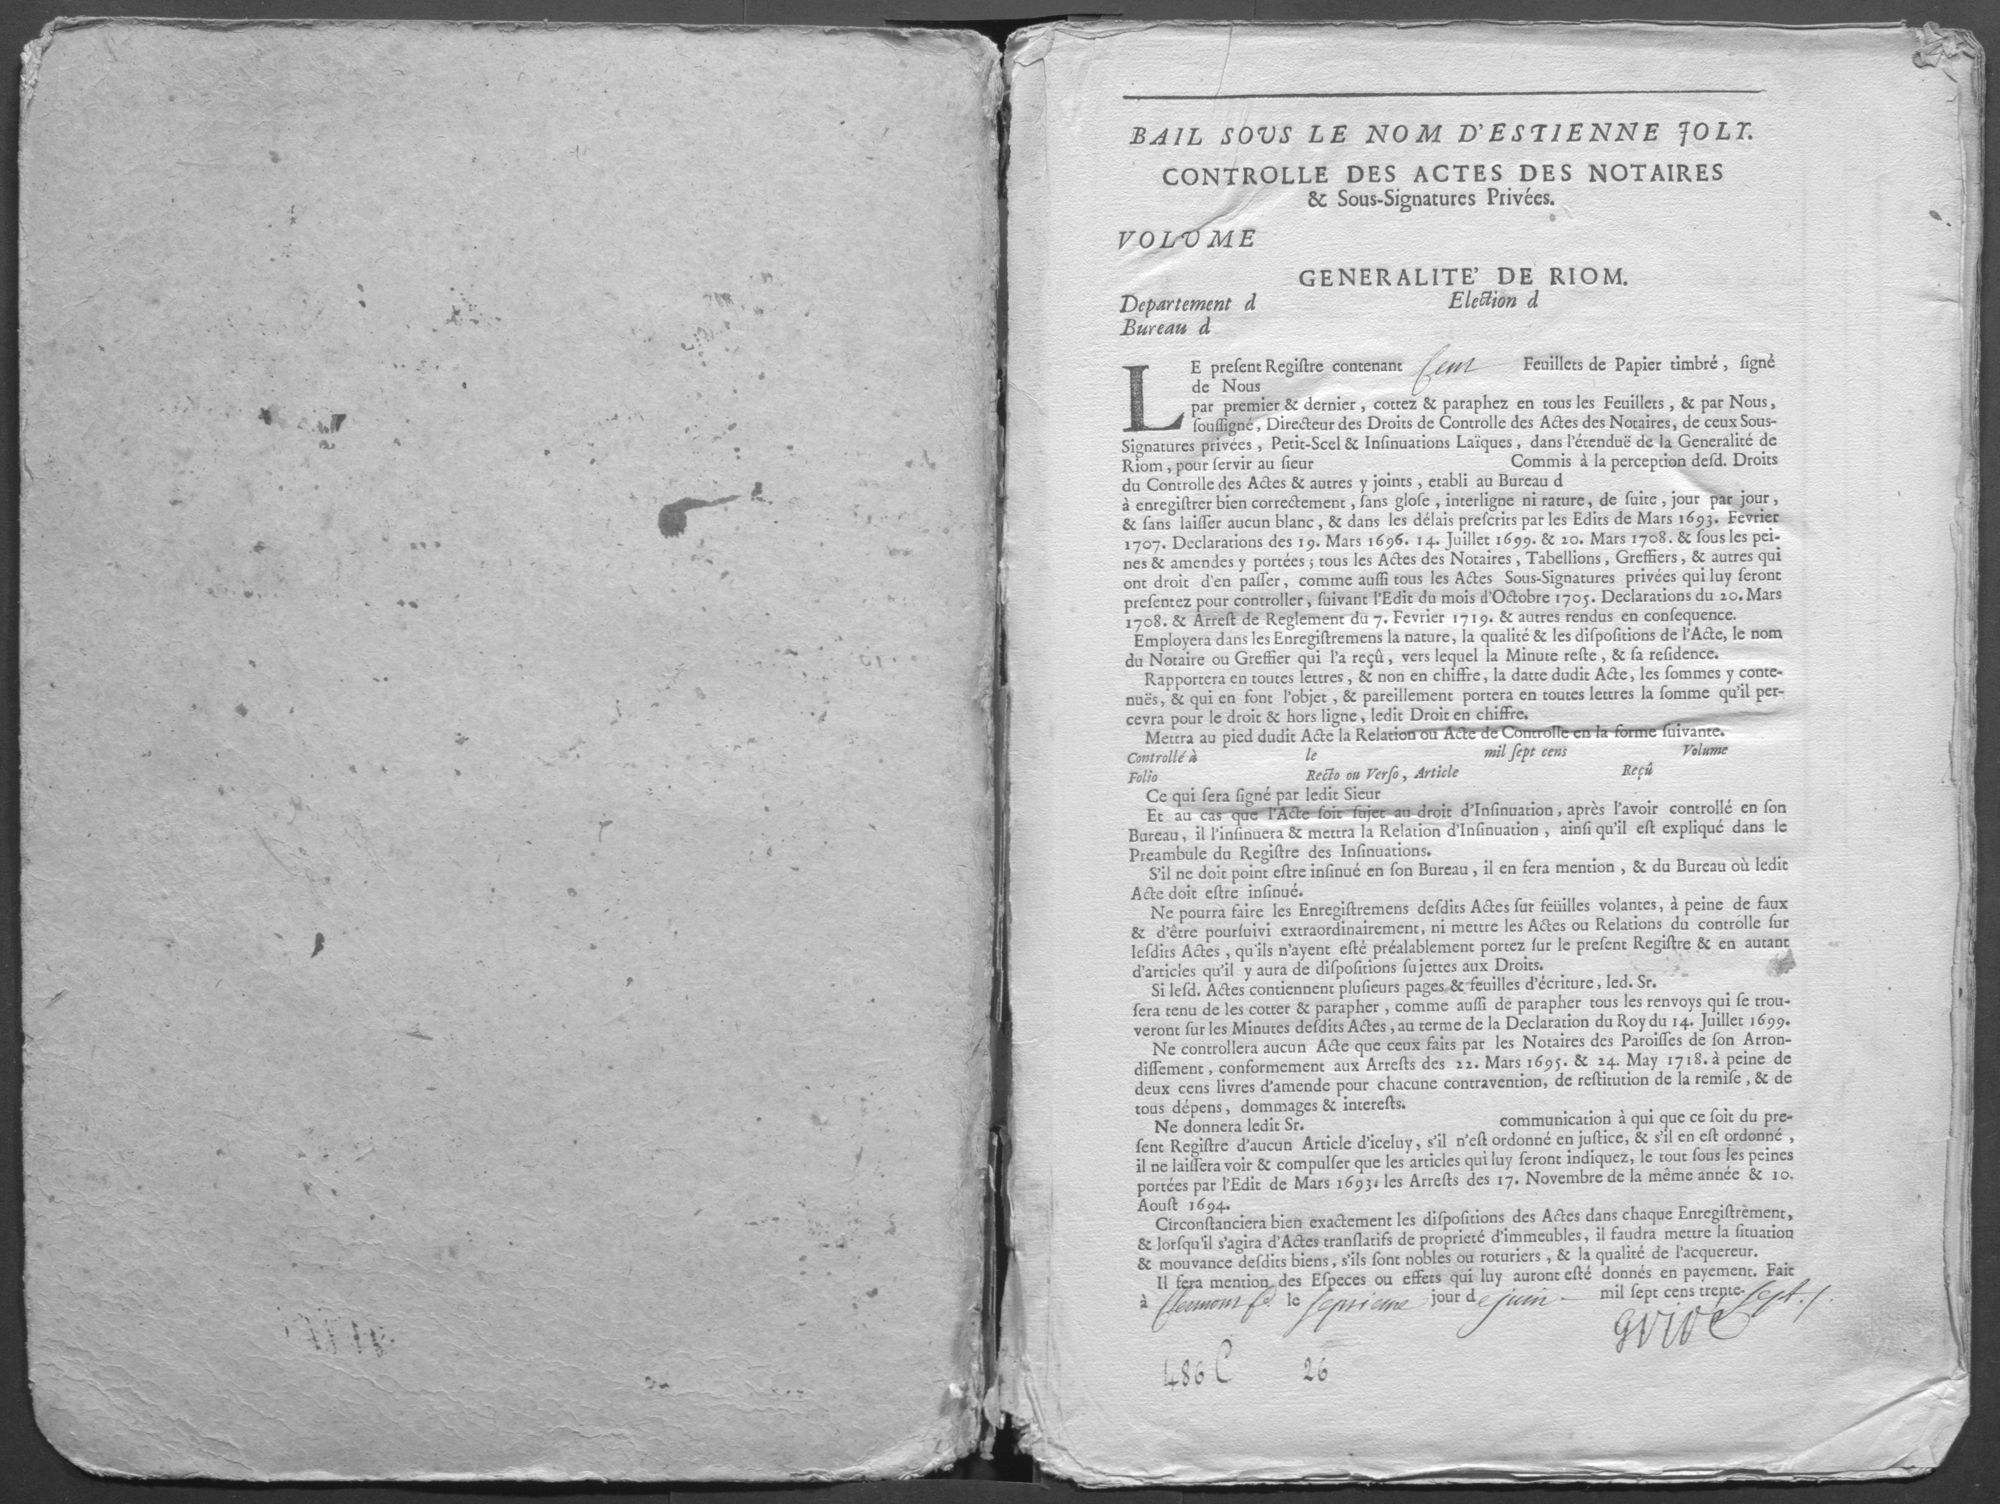 BAIL SOUS LE NOM D'ESTIENNE JOLY.
CONTROLLE DES ACTES DES NOTAIRES
& Sous-Signatures Privées.
VOLUME
GENERALITE' DE RIOM.
Departement d Election d
Bureau d
LE preſent Regiſtre contenant Cent Feuillets de Papier timbré, ſigné
de Nous
par premier & dernier, cottez & paraphez en tous les Feuillets, & par Nous,
ſouſſigné, Directeur des Droits de Controlle des Actes des Notaires, de ceux Sous-
Signatures privées, Petit-Scel & Inſinuations Laïques, dans l'étenduë de la Generalité de
Riom, pour ſervir au ſieur Commis à la perception deſd. Droits
du Controlle des Actes & autres y joints, etabli au Bureau d
à enregiſtrer bien correctement, ſans gloſe, interligne ni rature, de ſuite, jour par jour,
& ſans laiſſer aucun blanc, & dans les délais preſcrits par les Edits de Mars 1693. Fevrier
1707. Declarations des 19. Mars 1696. 14. Juillet 1699. & 20. Mars 1708. & ſous les pei-
nes & amendes y portées; tous les Actes des Notaires, Tabellions, Greffiers, & autres qui
ont droit d'en paſſer, comme auſſi tous les Actes Sous-Signatures privées qui luy ſeront
preſentez pour controller, ſuivant l'Edit du mois d'Octobre 1705. Declarations du 20. Mars
1708. & Arreſt de Reglement du 7. Fevrier 1719. & autres rendus en conſequence.
Employera dans les Enregiſtremens la nature, la qualité & les diſpoſitions de l'Acte, le nom
du Notaire ou Greffier qui l'a reçû, vers lequel la Minute reſte, & ſa reſidence.
Rapportera en toutes lettres, & non en chiffre, la datte dudit Acte, les ſommes y conte-
nuës, & qui en font l'objet, & pareillement portera en toutes lettres la ſomme qu'il per-
cevra pour le droit & hors ligne, ledit Droit en chiffre.
Mettra au pied dudit Acte la Relation ou Acte de Controlle en la forme ſuivante.
Controllé à le mil ſept cens Volume
Folio Recto ou Verſo, Article Reçû
Ce qui ſera ſigné par ledit Sieur
Et au cas que l'Acte ſoit ſujet au droit d'Inſinuation, après l'avoir controllé en ſon
Bureau, il l'inſinuera & mettra la Relation d'Inſinuation, ainſi qu'il eſt expliqué dans le
Preambule du Regiſtre des Inſinuations.
S'il ne doit point eſtre inſinué en ſon Bureau, il en fera mention, & du Bureau où ledit
Acte doit eſtre inſinué.
Ne pourra faire les Enregiſtremens deſdits Actes ſur feüilles volantes, à peine de faux
& d'être pourſuivi extraordinairement, ni mettre les Actes ou Relations du controlle ſur
leſdits Actes, qu'ils n'ayent eſté préalablement portez ſur le preſent Regiſtre & en autant
d'articles qu'il y aura de diſpoſitions ſujettes aux Droits.
Si leſd. Actes contiennent pluſieurs pages & feuilles d'écriture, led. Sr.
ſera tenu de les cotter & parapher, comme auſſi de parapher tous les renvoys qui ſe trou-
veront ſur les Minutes deſdits Actes, au terme de la Declaration du Roy du 14. Juillet 1699.
Ne controllera aucun Acte que ceux faits par les Notaires des Paroiſſes de ſon Arron-
diſſement, conformement aux Arreſts des 22. Mars 1695. & 24. May 1718. à peine de
deux cens livres d'amende pour chacune contravention, de reſtitution de la remiſe, & de
tous dépens, dommages & intereſts.
Ne donnera ledit Sr. communication à qui que ce ſoit du pre-
ſent Regiſtre d'aucun Article d'iceluy, s'il n'eſt ordonné en juſtice, & s'il en eſt ordonné,
il ne laiſſera voir & compulſer que les articles qui luy ſeront indiquez, le tout ſous les peines
portées par l'Edit de Mars 1693. les Arreſts des 17. Novembre de la même année & 10.
Aouſt 1694.
Circonſtanciera bien exactement les diſpoſitions des Actes dans chaque Enregiſtrement,
& lorſqu'il s'agira d'Actes tranſlatifs de proprieté d'immeubles, il faudra mettre la ſituation
& mouvance deſdits biens, s'ils ſont nobles ou roturiers, & la qualité de l'acquereur.
Il ſera mention des Eſpeces ou effets qui luy auront eſté donnés en payement. Fait
à Clermont fd. le septieme jour de juin mil ſept cens trente-sept.
486 C 26